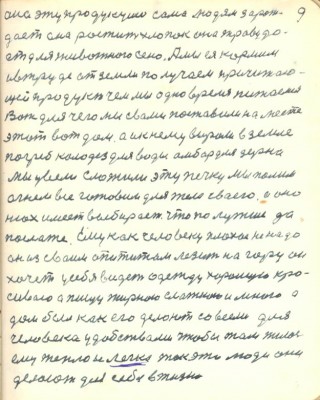 она эту продукцию сама людям зарож- 9
дает она растит хлопок она травы до-
ст для животного сено. А мы ея кормим
и в труде от земли получаем причетаю-
щей продукт чем мы одновремя питаемся
Вот для чего мы с вами поставили на месте
этот вот дом, а и к нему вырыли в земле
погреб колодез для воды амбар для зерна
Мы умеем сложили эту печку мы топим
огнем все готовим для тела своего. а оно
нюх имеет выбирает. что по лучше да
послаже. Ему как человеку плохое не надо
он из своим апетитам лезит на гору он
хочет у себя видеть одежду хорошую кра-
сиваю а пищу жирною слажною и много а
дом был как его делают со всем для
человека удобствами чтобы там жилось
ему тепло и легко так эти люди они
делают для себя в жизни